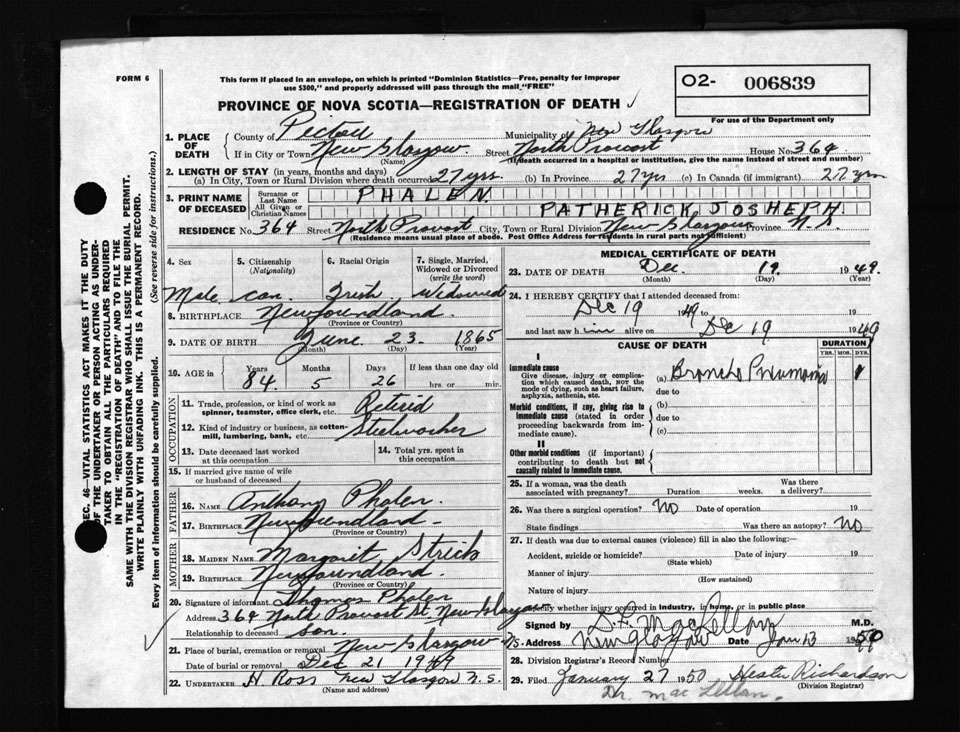 FORM 6
This form if placed in an envelope, on which is printed "Dominion Statistics—Free, penalty for improper
use $300," and properly addressed will pass through the mail "FREE"
O2- 006839
For use of the Department only
PROVINCE OF NOVA SCOTIA—REGISTRATION OF DEATH
1. PLACE OF DEATH
County of Pictou Municipality of New Glasgow
If in City or Town New Glasgow. Street North Provost House No. 364
(Name) (If death occurred in a hospital or institution, give the name instead of street and number)
2. LENGTH OF STAY (in years, months and days)
(a) In City, Town or Rural Division where death occurred 27 yrs. (b) In Province 27 yrs (c) In Canada (if immigrant) 27 yrs
3. PRINT NAME OF DECEASED
Surname or Last Name PHALEN.
All Given or Christian Names PATHERICK JOSHEPH.
RESIDENCE No. 364 Street North Provost City, Town or Rural Division New Glasgow Province N.S.
(Residence means usual place of abode. Post Office Address for residents in rural parts not sufficient)
4. Sex 5. Citizenship (Nationality) 6. Racial Origin 7. Single, Married, Widowed or Divorced (write the word)
Male Can. Irish Widowed
8. BIRTHPLACE Newfoundland.
(Province or Country)
9. DATE OF BIRTH June 23. 1865
(Month) (Day) (Year)
10. AGE in Years Months Days If less than one day old
84 5 26 hrs. or min.
OCCUPATION
11. Trade, profession, or kind of work as spinner, teamster, office clerk, etc. Retirid
12. Kind of industry or business, as cotton-mill, lumbering, bank, etc. Steelworker
13. Date deceased last worked at this occupation
14. Total yrs. spent in this occupation
15. If married give name of wife or husband of deceased
FATHER
16. NAME Anthony Phalen.
17. BIRTHPLACE Newfoundland.
(Province or Country)
MOTHER
18. MAIDEN NAME Margaret
19. BIRTHPLACE Newfoundland.
(Province or Country)
20. Signature of informant Thomas Phalen
Address 364 North Provost St. New Glasgow
Relationship to deceased Son.
21. Place of burial, cremation or removal New Glasgow
Date of burial or removal Dec 21 1949
22. UNDERTAKER H Ross New Glasgow N.S.
(Name and address)
MEDICAL CERTIFICATE OF DEATH
23. DATE OF DEATH Dec. 19. 1949.
(Month) (Day) (Year)
24. I HEREBY CERTIFY that I attended deceased from:
Dec 19 1949 to 19
and last saw him alive on Dec 19 1949
CAUSE OF DEATH
DURATION
YRS. MOS. DYS.
I
Immediate cause
Give disease, injury or complication which caused death, NOT the mode of dying, such as heart failure, asphyxia, asthenia, etc.
(a) Broncho Pneumonia
due to
Morbid conditions, if any, giving rise to immediate cause (stated in order proceeding backwards from immediate cause).
(b)
due to
(c)
II
Other morbid conditions (if important) contributing to death but not causally related to immediate cause.
25. If a woman, was the death associated with pregnancy? Duration weeks. Was there a delivery?
26. Was there a surgical operation? No Date of operation 19
State findings Was there an autopsy? No
27. If death was due to external causes (violence) fill in also the following:—
Accident, suicide or homicide? Date of injury 19
(State which)
Manner of injury
(How sustained)
Nature of injury
Specify whether injury occurred in industry, in home, or in public place
Signed by M.D.
Address New Glasgow Date Jan 13 1950
28. Division Registrar's Record Number
29. Filed January 27 1950 Hester Richardson
(Division Registrar)
Dr. Mac Lellan.
SEC. 46—VITAL STATISTICS ACT MAKES IT THE DUTY
OF THE UNDERTAKER OR PERSON ACTING AS UNDER-
TAKER TO OBTAIN ALL THE PARTICULARS REQUIRED
IN THE "REGISTRATION OF DEATH" AND TO FILE THE
SAME WITH THE DIVISION REGISTRAR WHO SHALL ISSUE THE BURIAL PERMIT.
WRITE PLAINLY WITH UNFADING INK. THIS IS A PERMANENT RECORD.
Every item of information should be carefully supplied. (See reverse side for instructions.)